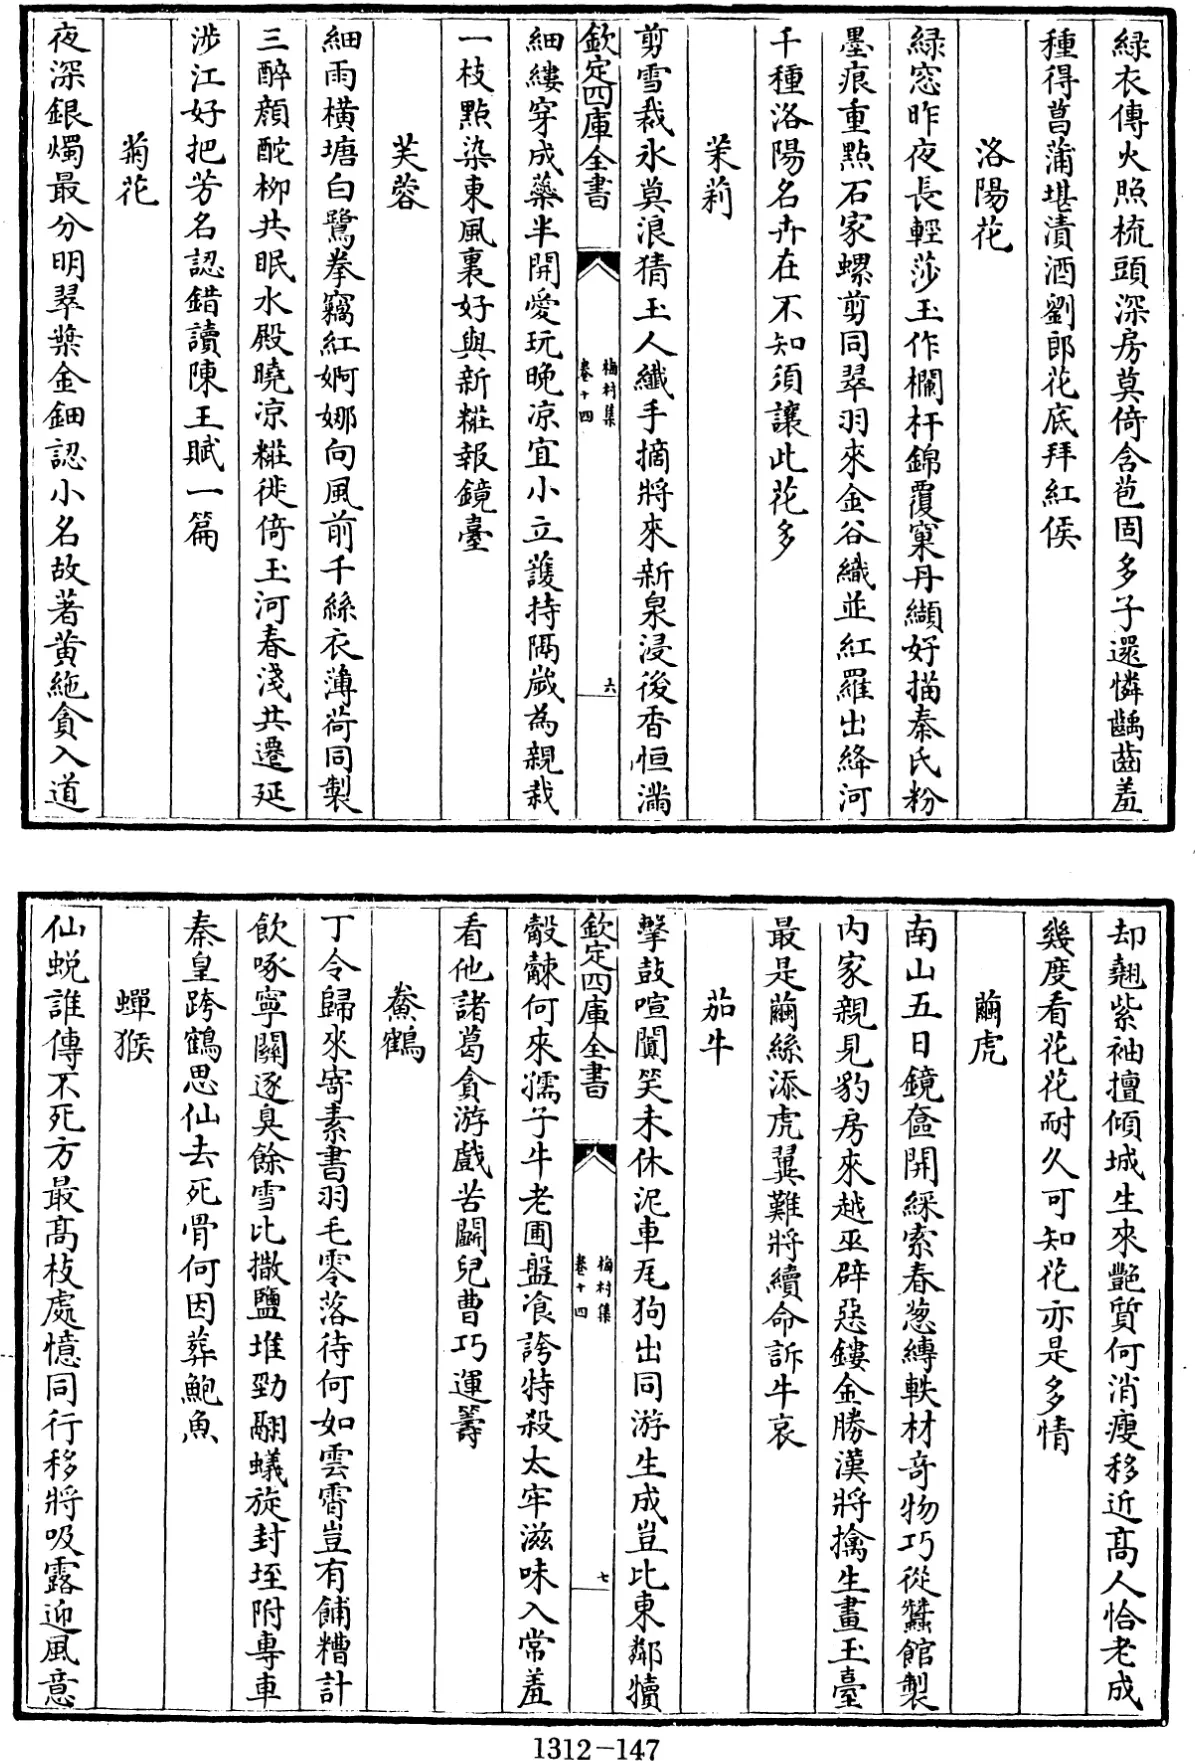 緑衣傳火照梳頭深房莫倚含苞固多子還憐齲齒羞
種得菖蒲堪漬酒劉郎花底拜紅侯
洛陽花
緑窓昨夜長輕莎玉作欄杆錦覆窠丹纈好描秦氏粉
墨痕重點石家螺剪同翠羽來金谷織並紅羅出絳河
千種洛陽名卉在不知須讓此花多
茉莉
剪雪裁氷莫浪猜玉人纖手摘將來新泉浸後香恒滿
欽定四庫全書
梅村集
卷十四
六
細縷穿成蘂半開愛玩晚凉宜小立護持隔歲為親栽
一枝點染東風裏好與新糚報鏡臺
芙蓉
細雨橫塘白鷺拳竊紅婀娜向風前千絲衣薄荷同製
三醉顔酡柳共眠水殿曉凉糚徙倚玉河春淺共遷延
涉江好把芳名認錯讀陳王賦一篇
菊花
夜深銀燭最分明翠葉金鈿認小名故著黄絁貪入道
却翹紫袖擅傾城生來艶質何消瘦移近髙人恰老成
幾度看花花耐久可知花亦是多情
繭虎
南山五日鏡奩開綵索春葱縛軼材奇物巧從蠶館製
内家親見豹房來越巫辟惡鏤金勝漢將擒生畫玉臺
最是繭絲添虎翼難將續命訴牛哀
茄牛
擊鼓喧闐笑未休泥車瓦狗出同游生成豈比東鄰犢
欽定四庫全書
梅村集
卷十四
七
觳觫何來孺子牛老圃盤飡誇特殺太牢滋味入常羞
看他諸葛貪游戲苦鬭兒曹巧運籌
鮝鶴
丁令歸來寄素書羽毛零落待何如雲霄豈有餔糟計
飲啄寧關逐臭餘雪比撒鹽堆勁翮蟻旋封垤附專車
秦皇跨鶴思仙去死骨何因葬鮑魚
蟬猴
仙蛻誰傳不死方最髙枝處憶同行移將吸露迎風意
1312—147